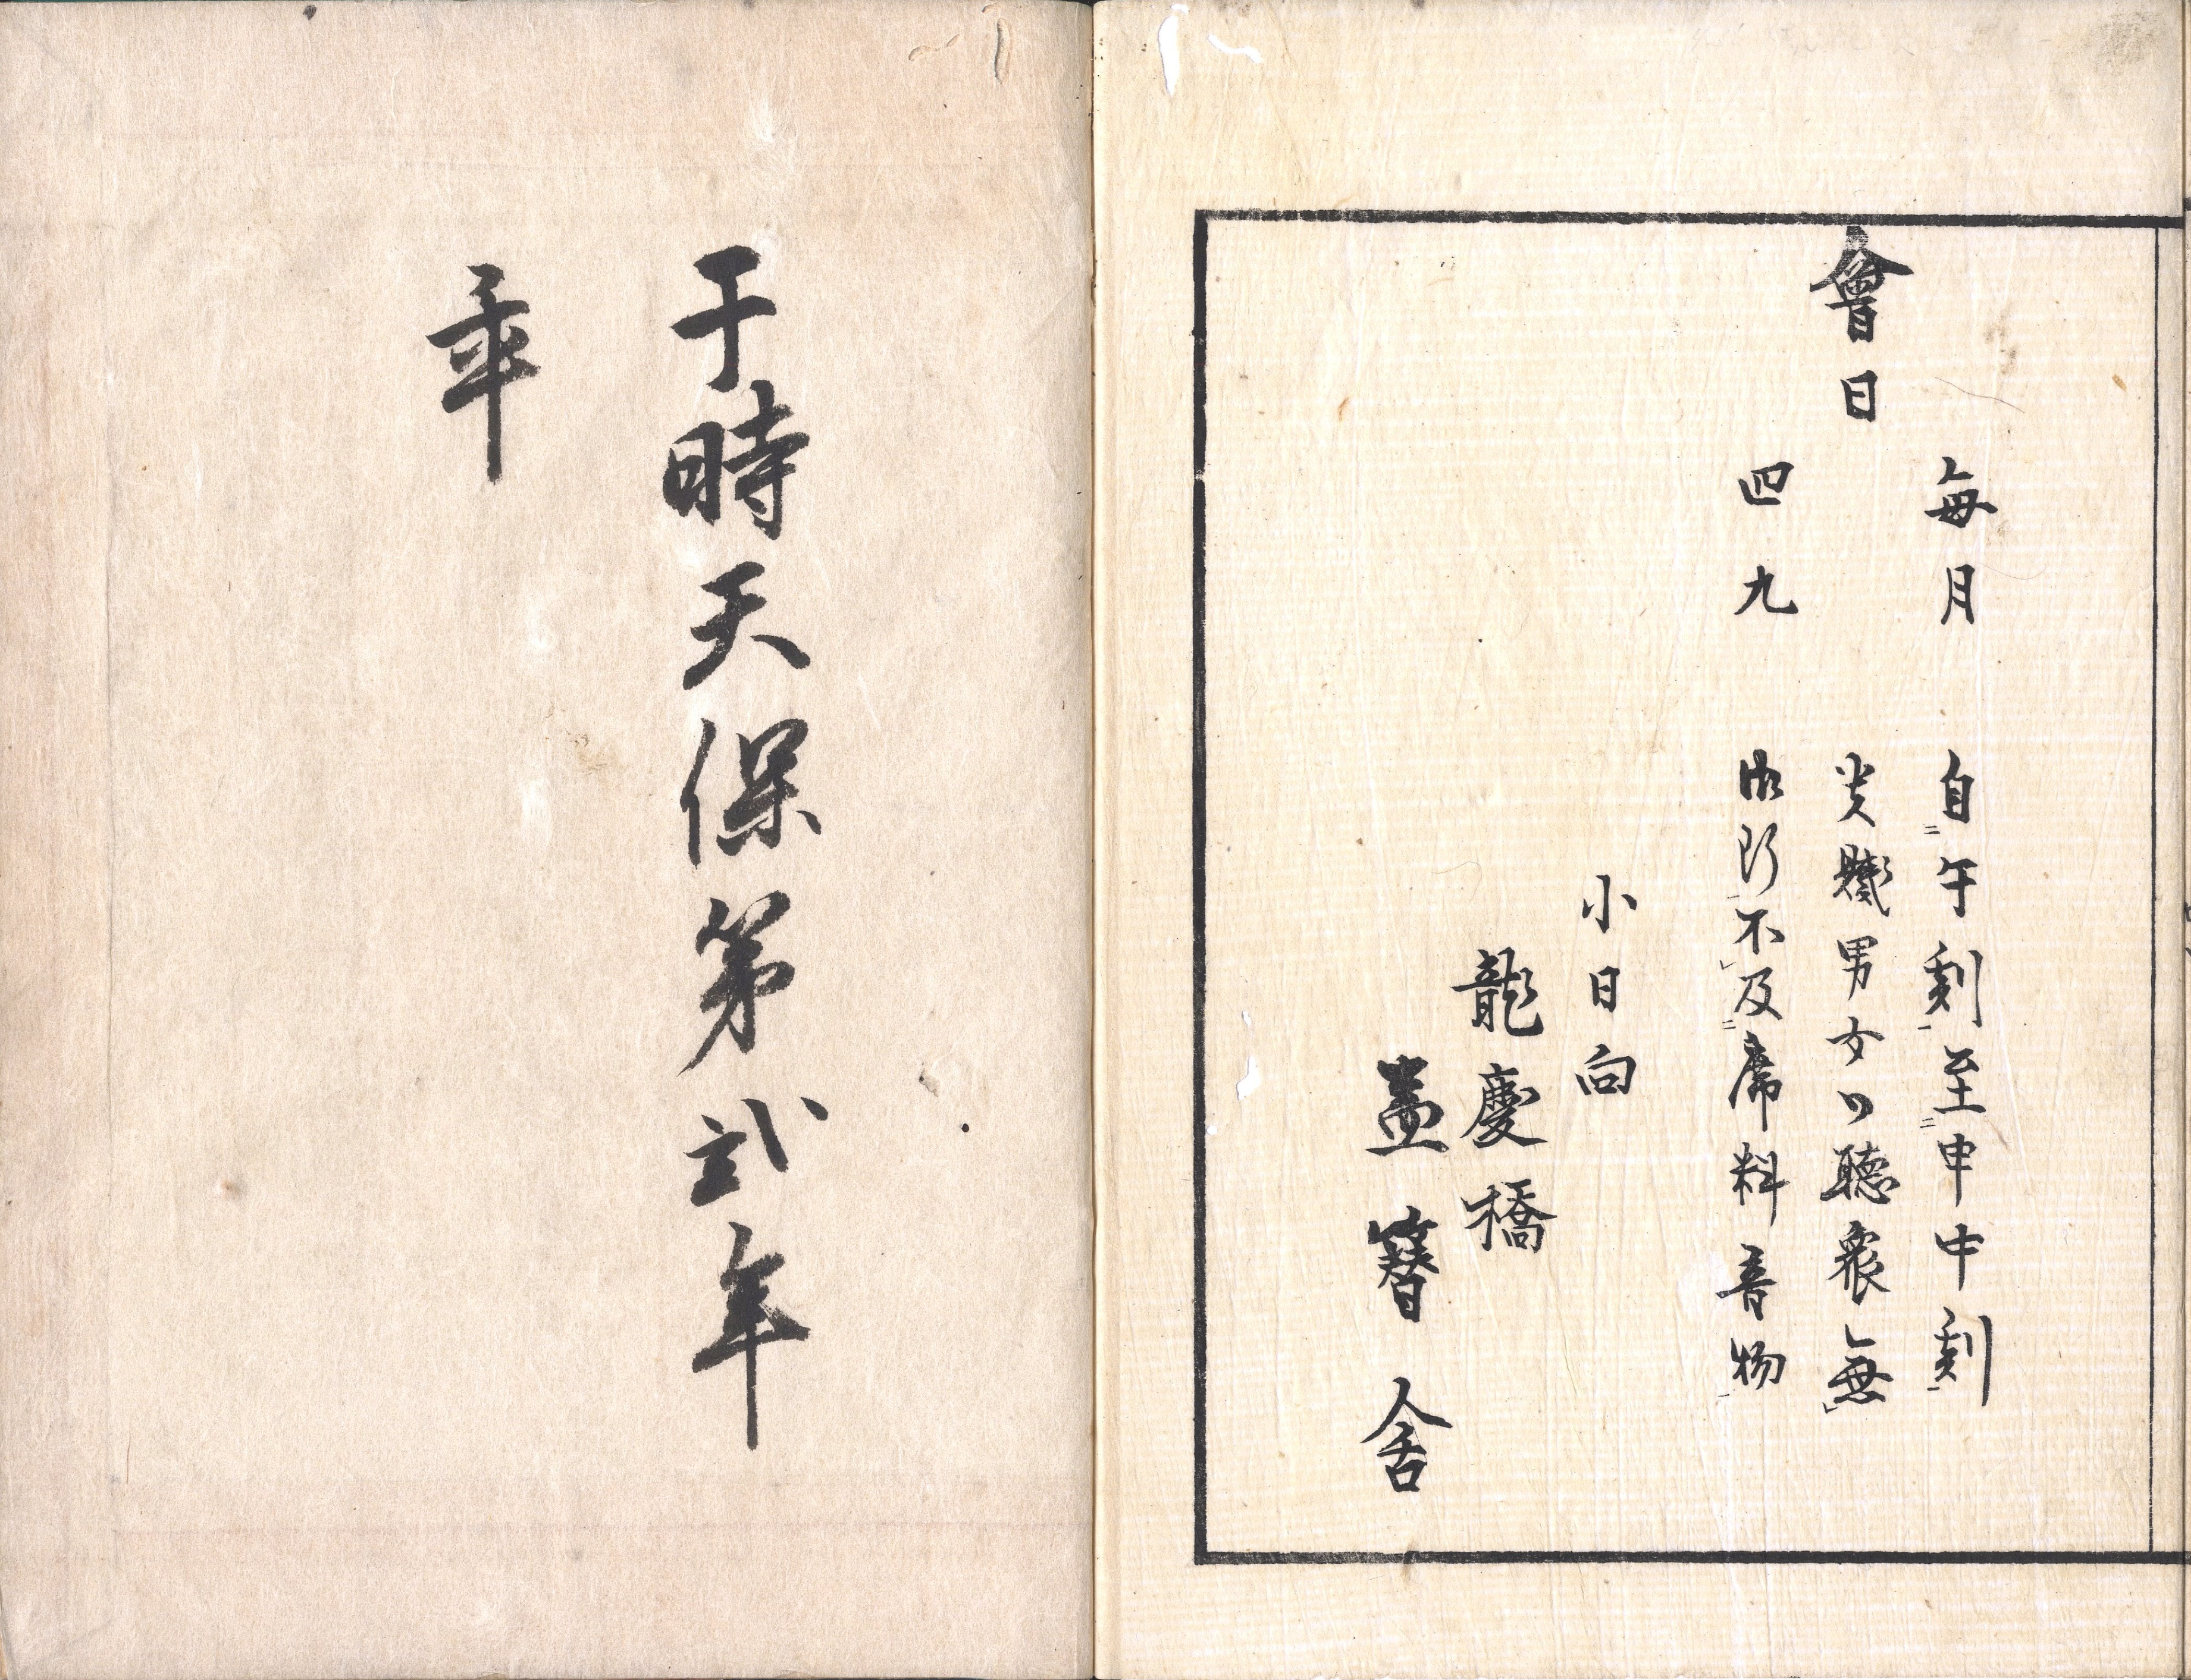 毎月　自午刻至申中刻
會日　貴賤男女の聴衆無
四九　御断不及席料音物
小日向
龍慶橋
盖簪舎
于時天保第弐年